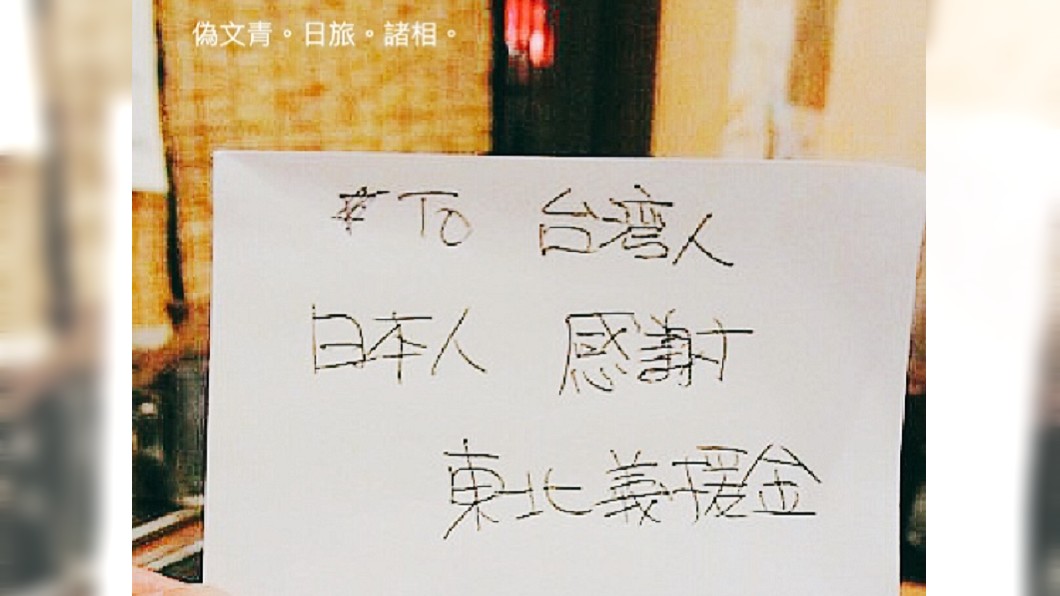 偽文青。日旅。諸相。
#To 台湾人
日本人 感謝
東北義援金